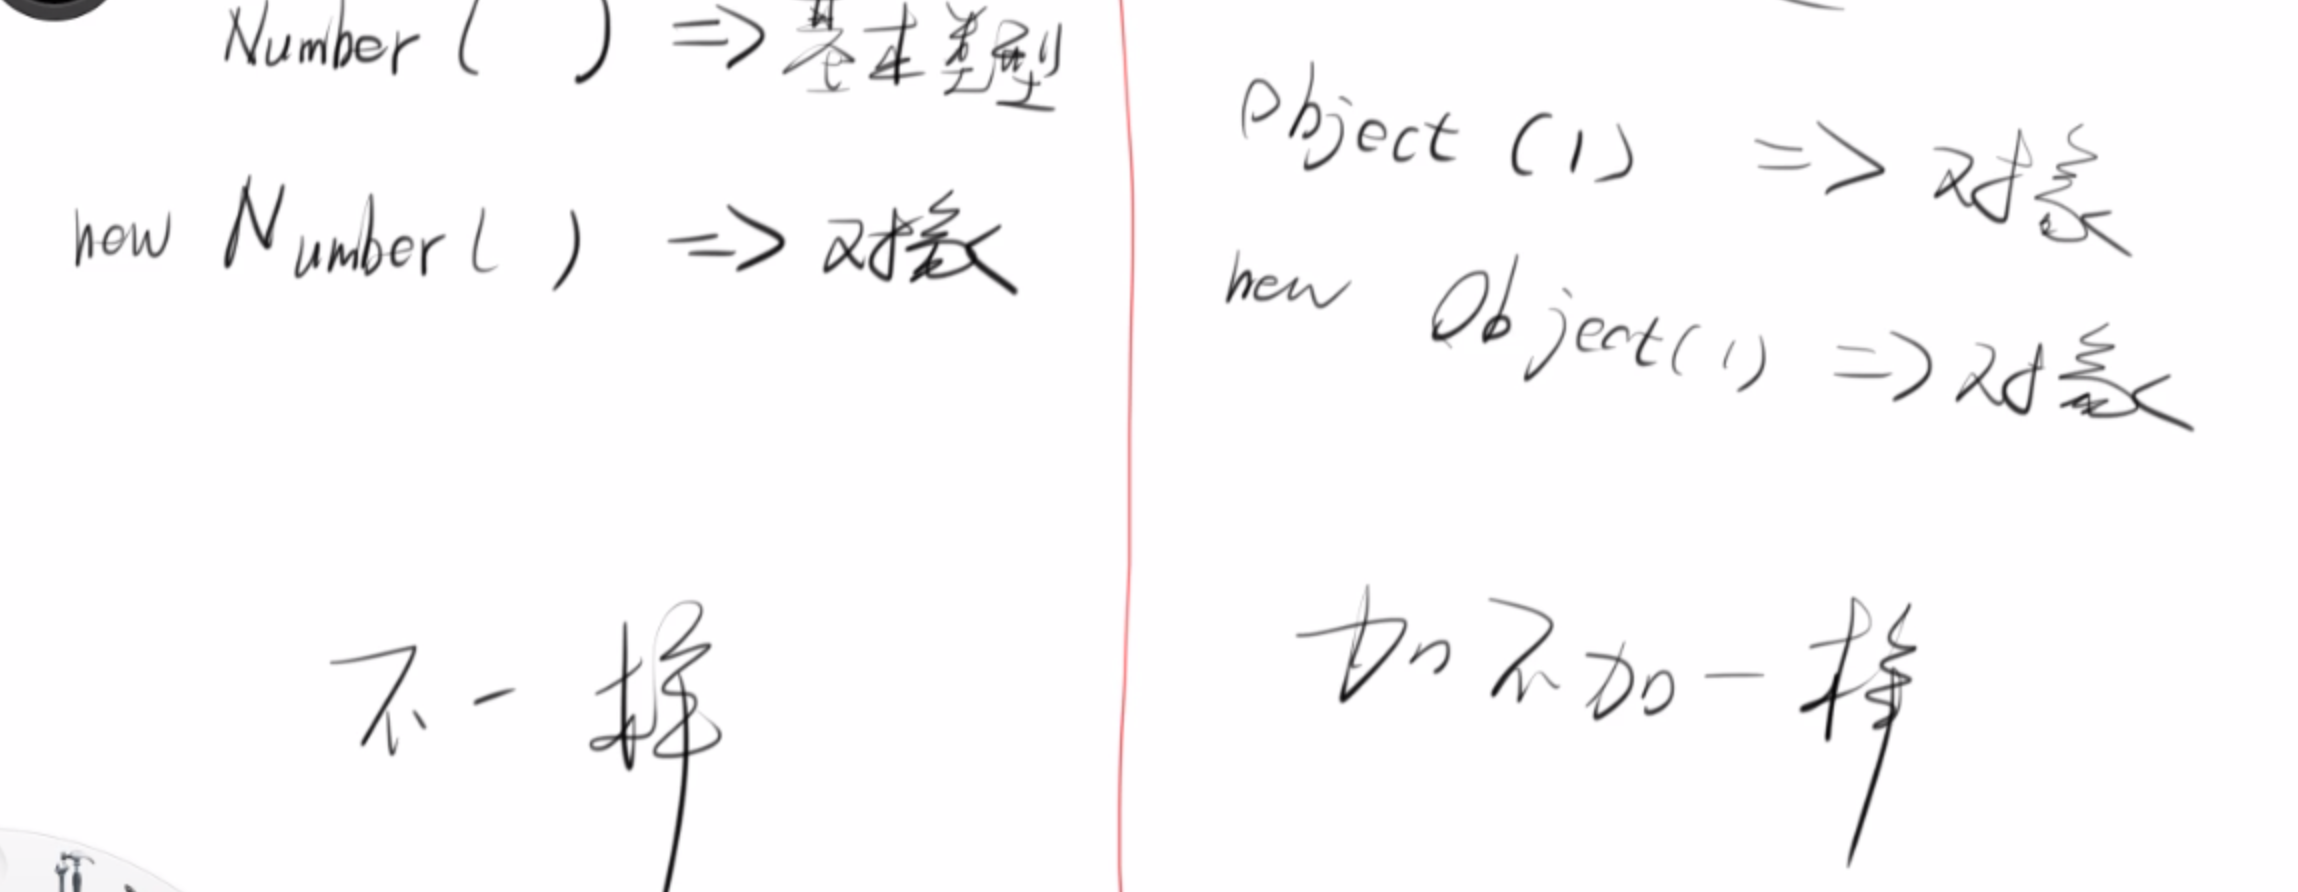 Number ( ) => 基本类型
new Number ( ) => 对象
不一样
Object (1) => 对象
new Object (1) => 对象
加不加一样